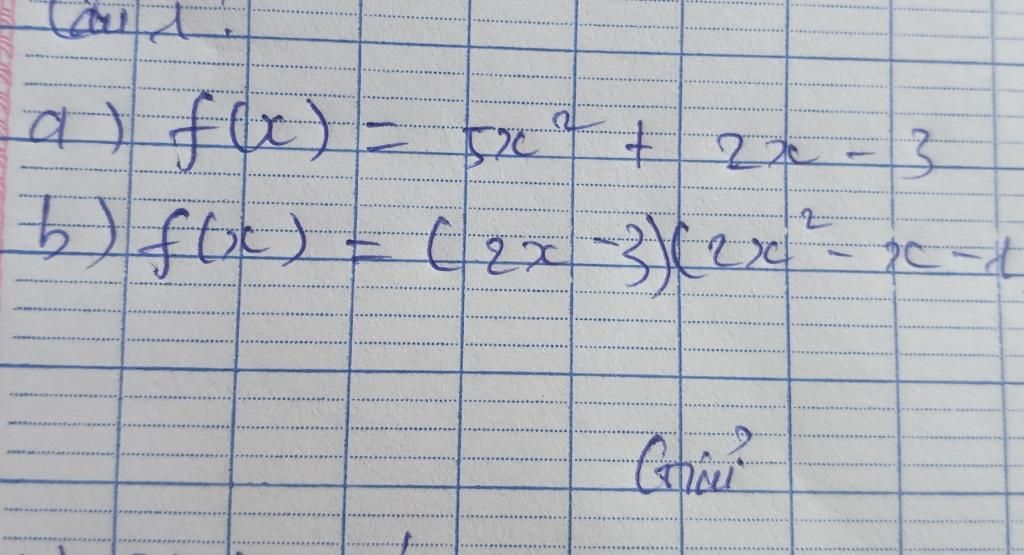 Câu 1.
a) f(x) = 5x² + 2x - 3
b) f(x) = (2x - 3)(2x² - x - 1
Giải